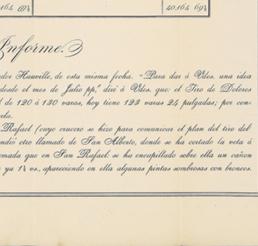 40.164 69¼
Informe.
Hauville, de esta misma fecha. "Para dar á Vdes. una idea
desde el mes de Julio pp., diré á Vdes. que el Tiro de Dolores
de 120 á 130 varas, hoy tiene 123 varas 24 pulgadas; por con-
Rafael (cuyo crucero se hizo para comunicar el plan del tiro del
otro llamado de San Alberto, donde se ha cortado la veta á
que en San Rafael: se ha encapillado sobre ella un cañon
ya 1½ vs., apareciendo en ella algunas pintas sombrosas con bronces.